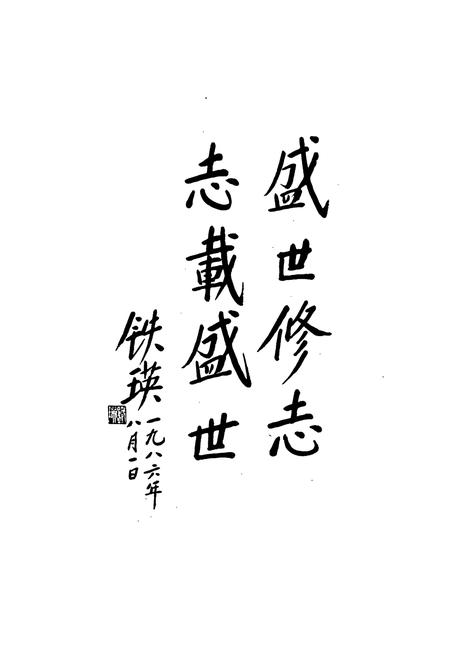 盛世修志
志載盛世
铁瑛
一九八六年
八月一日